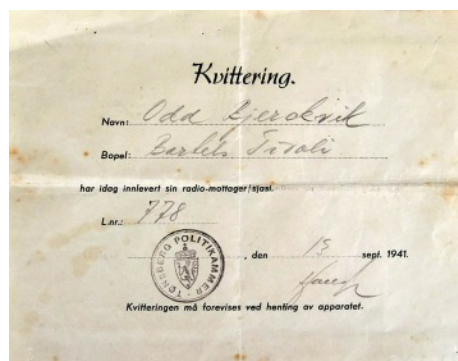 Kvittering.
Navn: Odd Bjerckvik
Bopel: Bartels Tivoli
har idag innlevert sin radio-mottager/sjasi.
L.nr.: 778
TØNSBERG POLITIKAMMER
, den 15 sept. 1941.
Kvitteringen må forevises ved henting av apparatet.